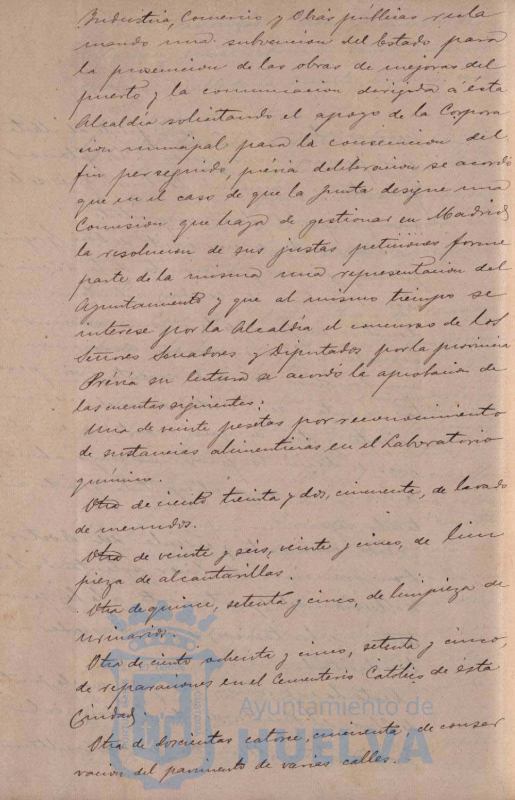 Industria, Comercio y Obras públicas recla
mando una subvencion del Estado para
la prosecucion de las obras de mejoras del
puerto y la comunicacion dirigida á ésta
Alcaldía solicitando el apoyo de la Corpora
cion municipal para la consecucion del
fin perseguido, prévia deliberacion se acordó
que en el caso de que la Junta designe una
Comision que haya de gestionar en Madrid
la resolucion de sus justas peticiones forme
parte de la misma una representacion del
Ayuntamiento y que al mismo tiempo se
interese por la Alcaldía el concurso de los
Señores Senadores y Diputados por la provincia
Prévia su lectura se acordó la aprobacion de
las cuentas siguientes:
Una de veinte pesetas por reconocimiento
de sustancias alimenticias en el Laboratorio
químico.
Otra de ciento treinta y dos, cincuenta, de lavado
de menudos.
Otra de veinte y seis, veinte y cinco, de lim
pieza de alcantarillas.
Otra de quince, setenta y cinco, de limpieza de
urinarios.
Otra de ciento ochenta y cinco, setenta y cinco,
de reparaciones en el Cementerio Católico de ésta
Ciudad
Otra de doscientas catorce, cincuenta, de conser
vacion del pavimento de varias calles.
Ayuntamiento de
HUELVA